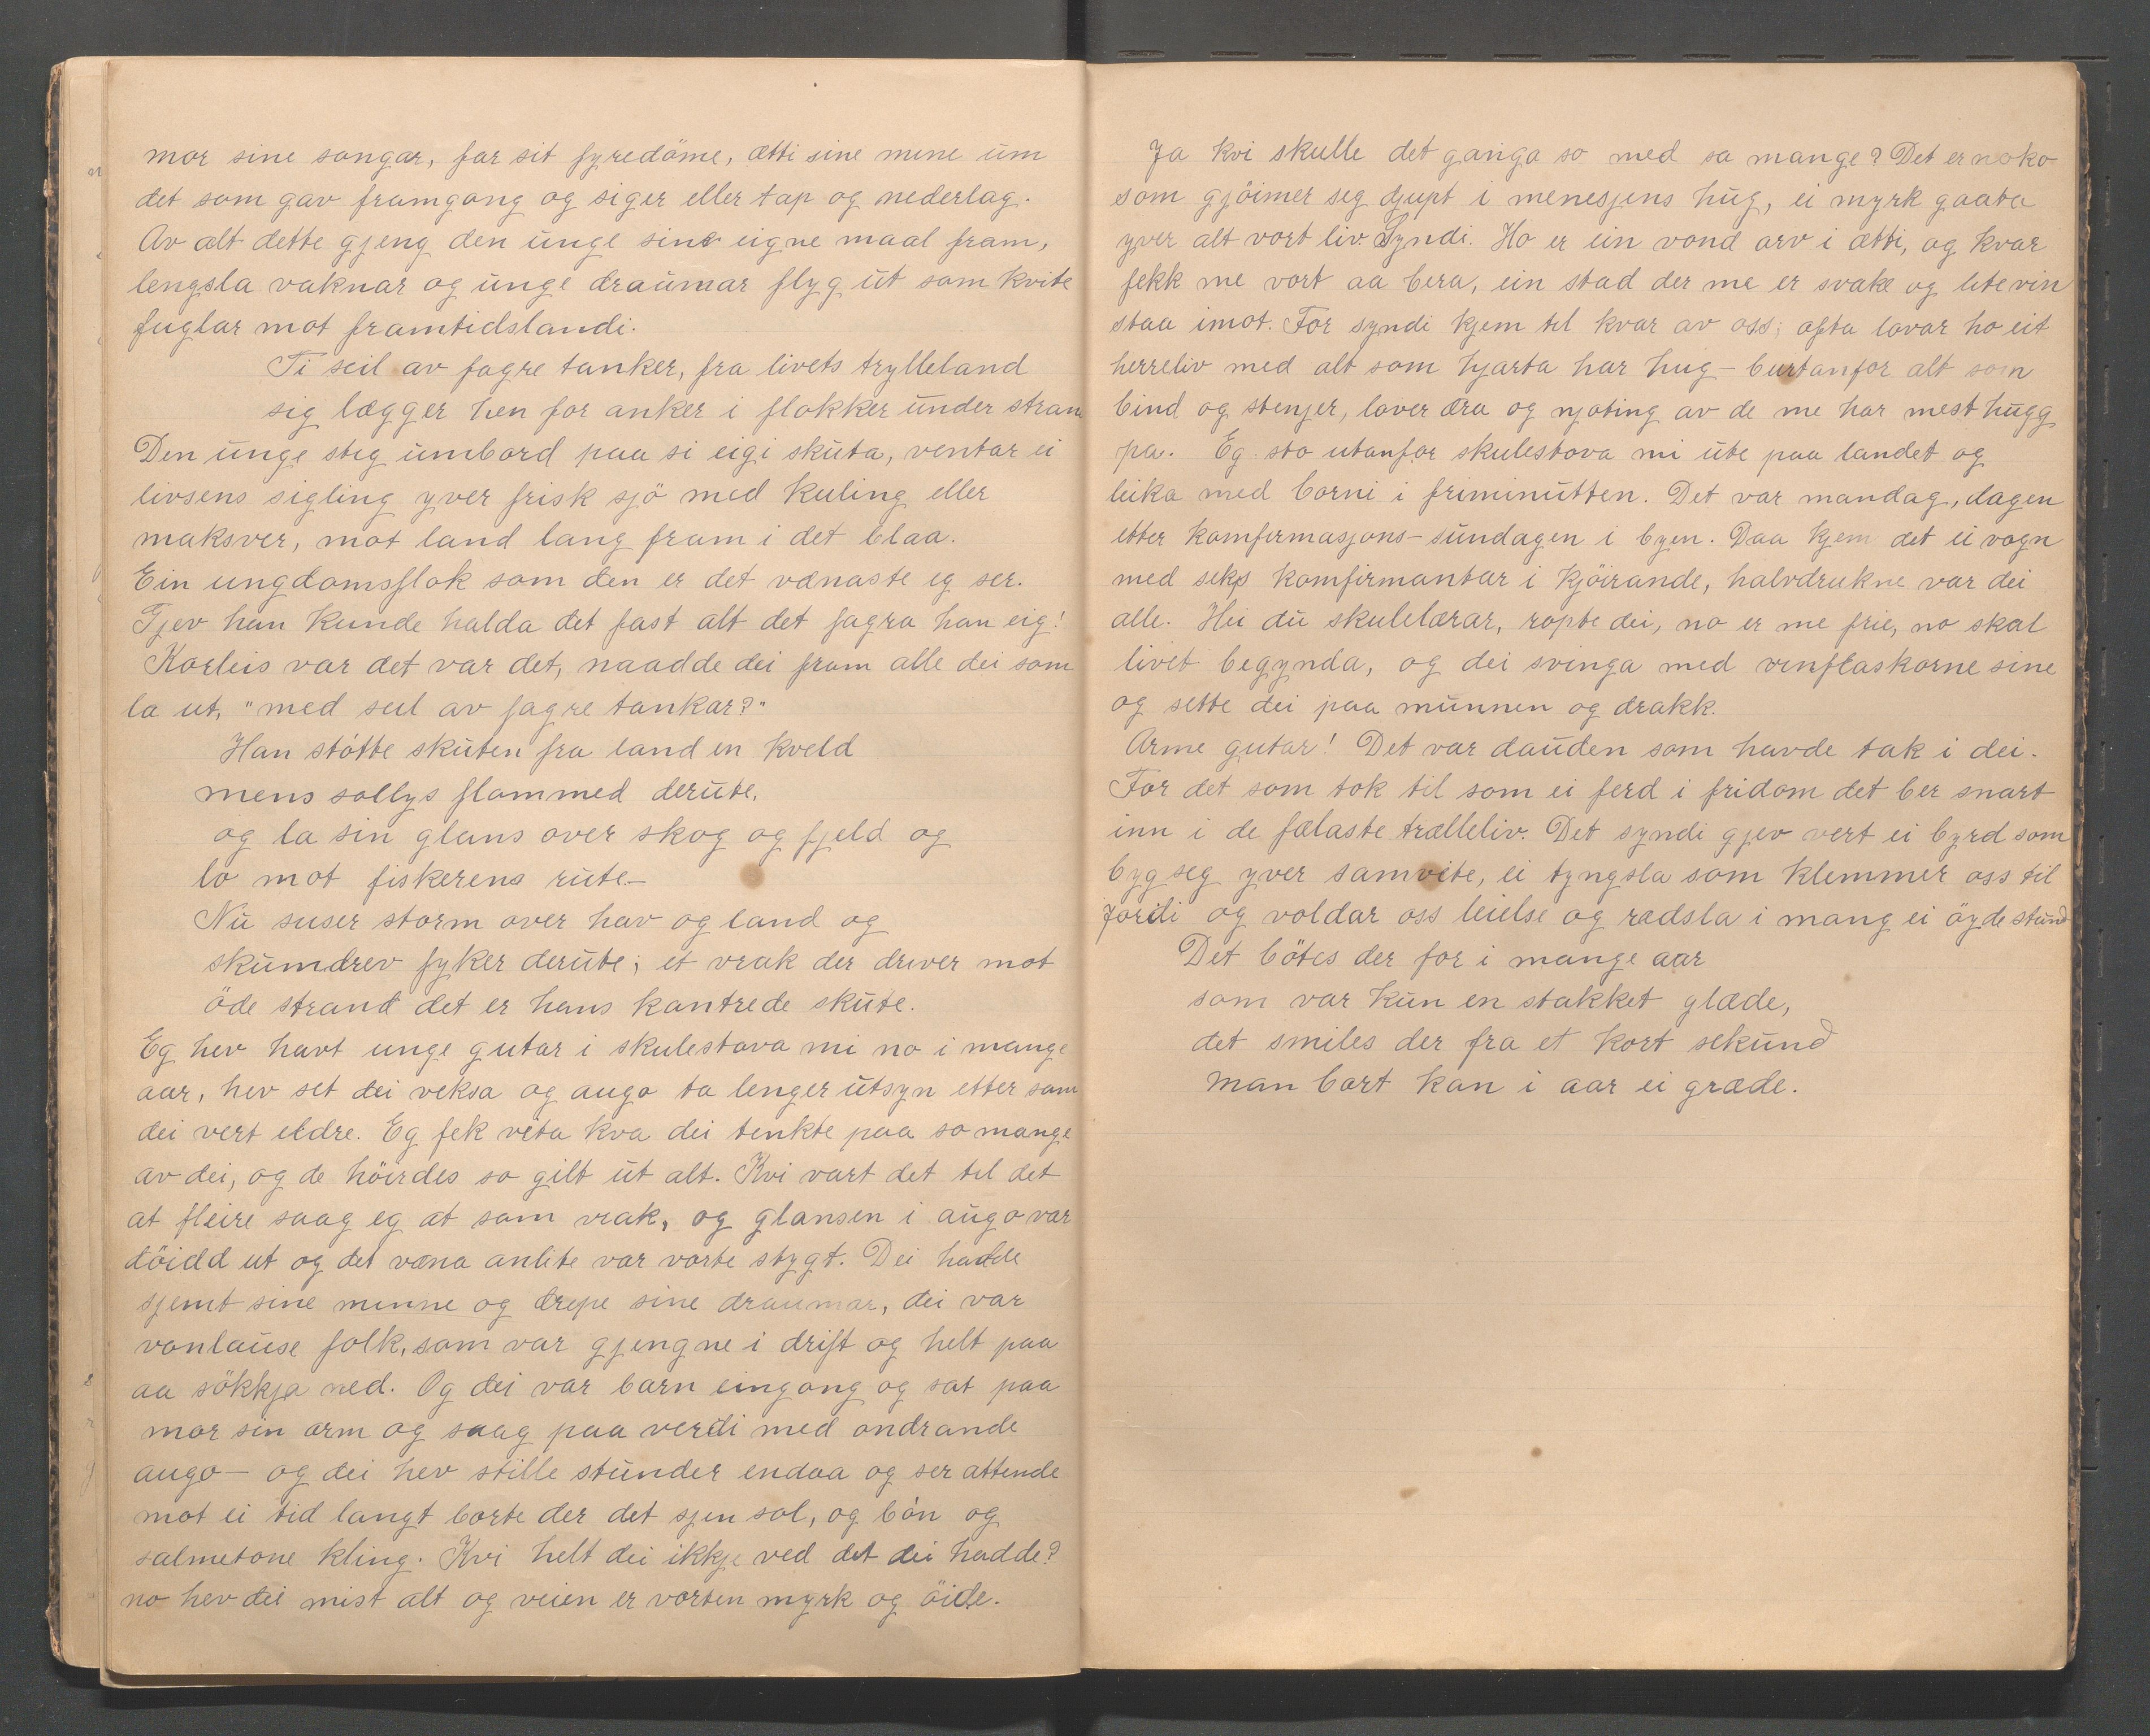 mor sine songar, far sit fyredöme, ætti sine mine um
det som gav framgang og siger eller tap og nederlag.
Av alt dette gjeng den unge sine eigne maal fram,
lengsla vaknar og unge draumar flyg ut som kvite
fuglar mot framtidslandi.
Ti seil av fagre tanker, fra livets trylleland
sig lægger hen for anker i flokker under stran
Den unge steg umbord paa si eigi skuta, ventar ei
livsens sigling yver frisk sjö med kuling eller
maksver, mot land lang fram i det blaa.
Ein ungdomsflok som den er det vænaste eg ser.
Gjev han kunde halda det fast alt det fagra han eig!
Korleis var det var det, naadde dei fram alle dei som
la ut, "med seil av fagre tankar?"
Han stötte skuten fra land en kveld
mens sollys flammed derute,
og la sin glans over skog og fjeld og
lo mot fiskerens rute—
Nu suser storm over hav og land og
skumdrev fyker derute; et vrak der driver mot
öde strand det er hans kantrede skute.
Eg hev havt unge gutar i skulestova mi no i mange
aar, hev set dei veksa og augo ta lenger utsyn etter som
dei vert eldre. Eg fek vita kva dei tenkte paa so mange
av dei, og de höirdes so gilt ut alt. Kvi vart det til det
at fleire saag eg at som vrak, og glansen i augo var
döidd ut og det væna anlite var vorte stygt. Dei hadde
sjemt sine minne og drepe sine draumar, dei var
vonlause folk, som var gjengne i drift og helt paa
aa sökkja ned. Og dei var barn eingong og sat paa
mor sin arm og saag paa verdi med ondrande
augo— og dei hev stille stunder endaa og ser attende
mot ei tid langt borte der det sjen sol, og bön og
salmetone kling. Kvi helt dei ikkje ved det dei hadde?
no hev dei mist alt og veien er vorten myrk og öide.
Ja kvi skulle det ganga so med so mange? Det er noko
som gjöimer seg djupt i menesjens hug, ei myrk gaata
yver alt vort liv. Syndi. Ho er ein vond arv i ætti, og kvar
fekk me vort aa bera, ein stad der me er svake og lite vin
staa imot. For syndi kjem til kvar av oss; ofta lovar ho eit
herreliv med alt som hjarta har hug— burtanfor alt som
bind og stenjer, lover æra og njoting av de me har mest hugg
pa. Eg sto utanfor skulestova mi ute paa landet og
leika med borni i friminutten. Det var mandag, dagen
etter komfirmasjons-sundagen i byen. Daa kjem det ei vogn
med seks komfirmantar i kjöirande, halvdrukne var dei
alle. Hei du skulelærar, ropte dei, no er me frie, no skal
livet begynda, og dei svinga med vinflaskorne sine
og sette dei paa munnen og drakk.
Arme gutar! Det var dauden som havde tak i dei.
For det som tok til som ei ferd i fridom det ber snart
inn i de fælaste trælleliv. Det syndi gjev vert ei byrd som
byg seg yver samvite, ei tyngsla som klemmer oss til
jordi og voldar oss leielse og rædsla i mang ei öyde stund
Det bötes der for i mange aar
som var kun en stakket glæde,
det smiles der fra et kort sekund
man bort kan i aar ei græde.